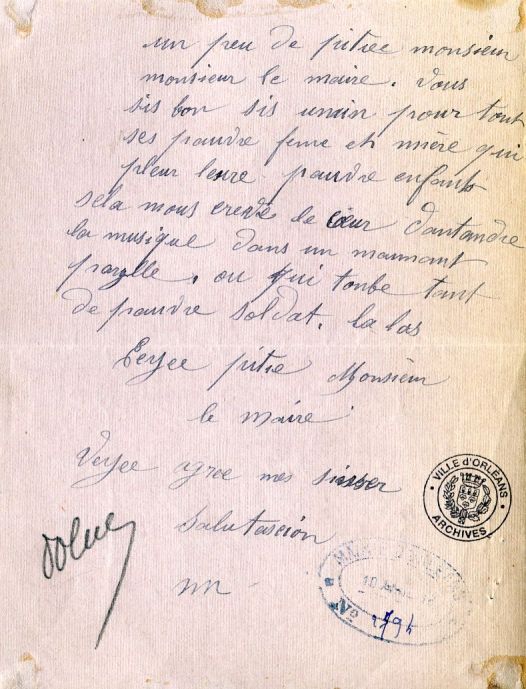 un peu de pitiee monsieur
monsieur le maire. vous
sis bon sis umin pour tout
ses pauvre feme et mière qui
pleur leure pauvre enfants
sela nous creve le cœur dantandre
la musique dans un maumant
parelle. ou qui tonbe tant
de pauvre soldat. la las
Eeyee pitie Monsieur
le maire
Veyee agree mes sinser
salutascion
VILLE d'ORLÉANS
ARCHIVES
No 1794